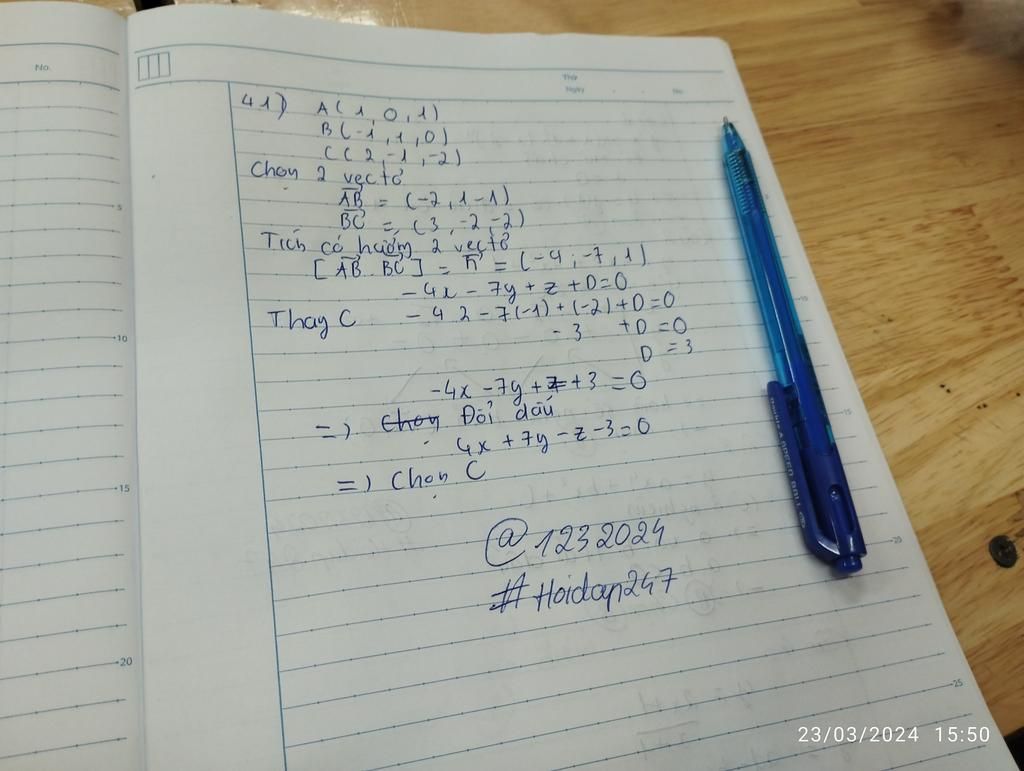 No.
Thứ
Ngày No
41) A(1, 0, 1)
B(-1, 1, 0)
C(2, -1, -2)
Chọn 2 vectơ
AB = (-2, 1 -1)
BC = (3, -2, -2)
Tích có hướng 2 vectơ
[AB. BC] = n = (-4; -7, 1)
-4x - 7y + z + D = 0
Thay C - 4 2 - 7(-1) + (-2) + D = 0
- 3 + D = 0
D = 3
-4x - 7y + z + 3 = 0
=) Chọn Đổi dấu
4x + 7y - z - 3 = 0
=) Chọn C
@1232024
#Hoidap247
5
10
15
20
10
15
20
25
23/03/2024 15:50